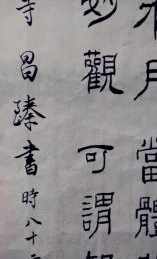 月當體
妙觀可謂
寺昌臻書時八十